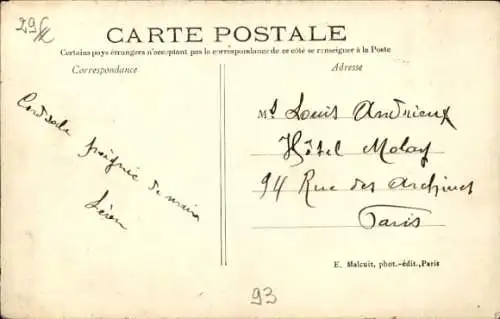 29
CARTE POSTALE
Certains pays étrangers n'acceptant pas la correspondance de ce côté se renseigner à la Poste
Correspondance
Adresse
Cordiale poignée de main
Léon
M. Louis Andrieux
Hôtel Molay
94 Rue des Archives
Paris
E. Malcuit, phot.-édit., Paris
93